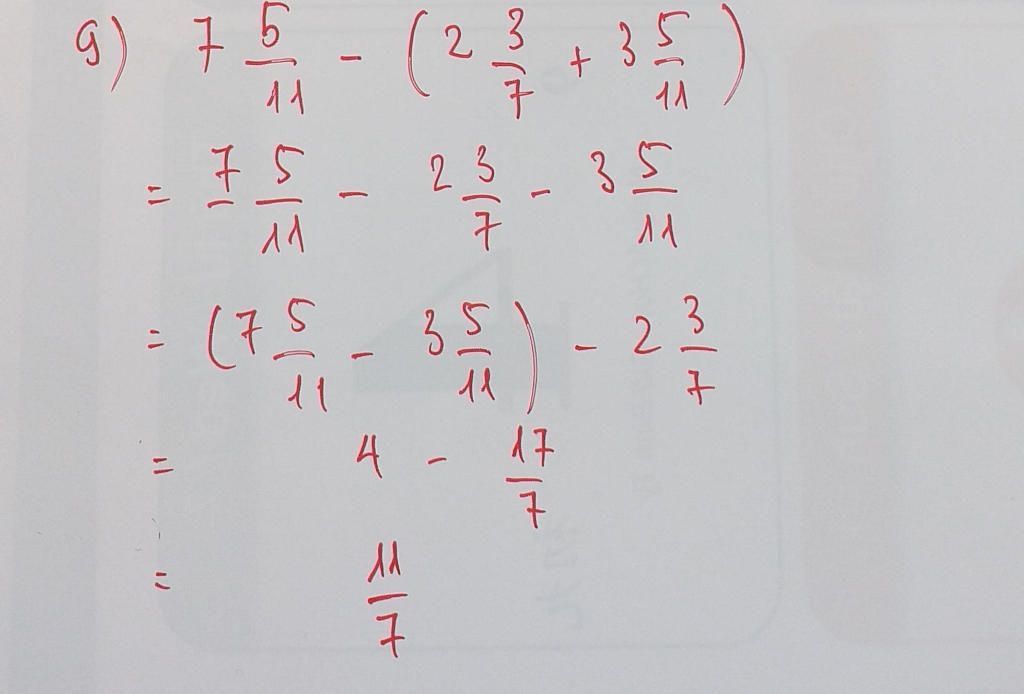 g) 7 5/11 - (2 3/7 + 3 5/11)
= 7 5/11 - 2 3/7 - 3 5/11
= (7 5/11 - 3 5/11) - 2 3/7
= 4 - 17/7
= 11/7